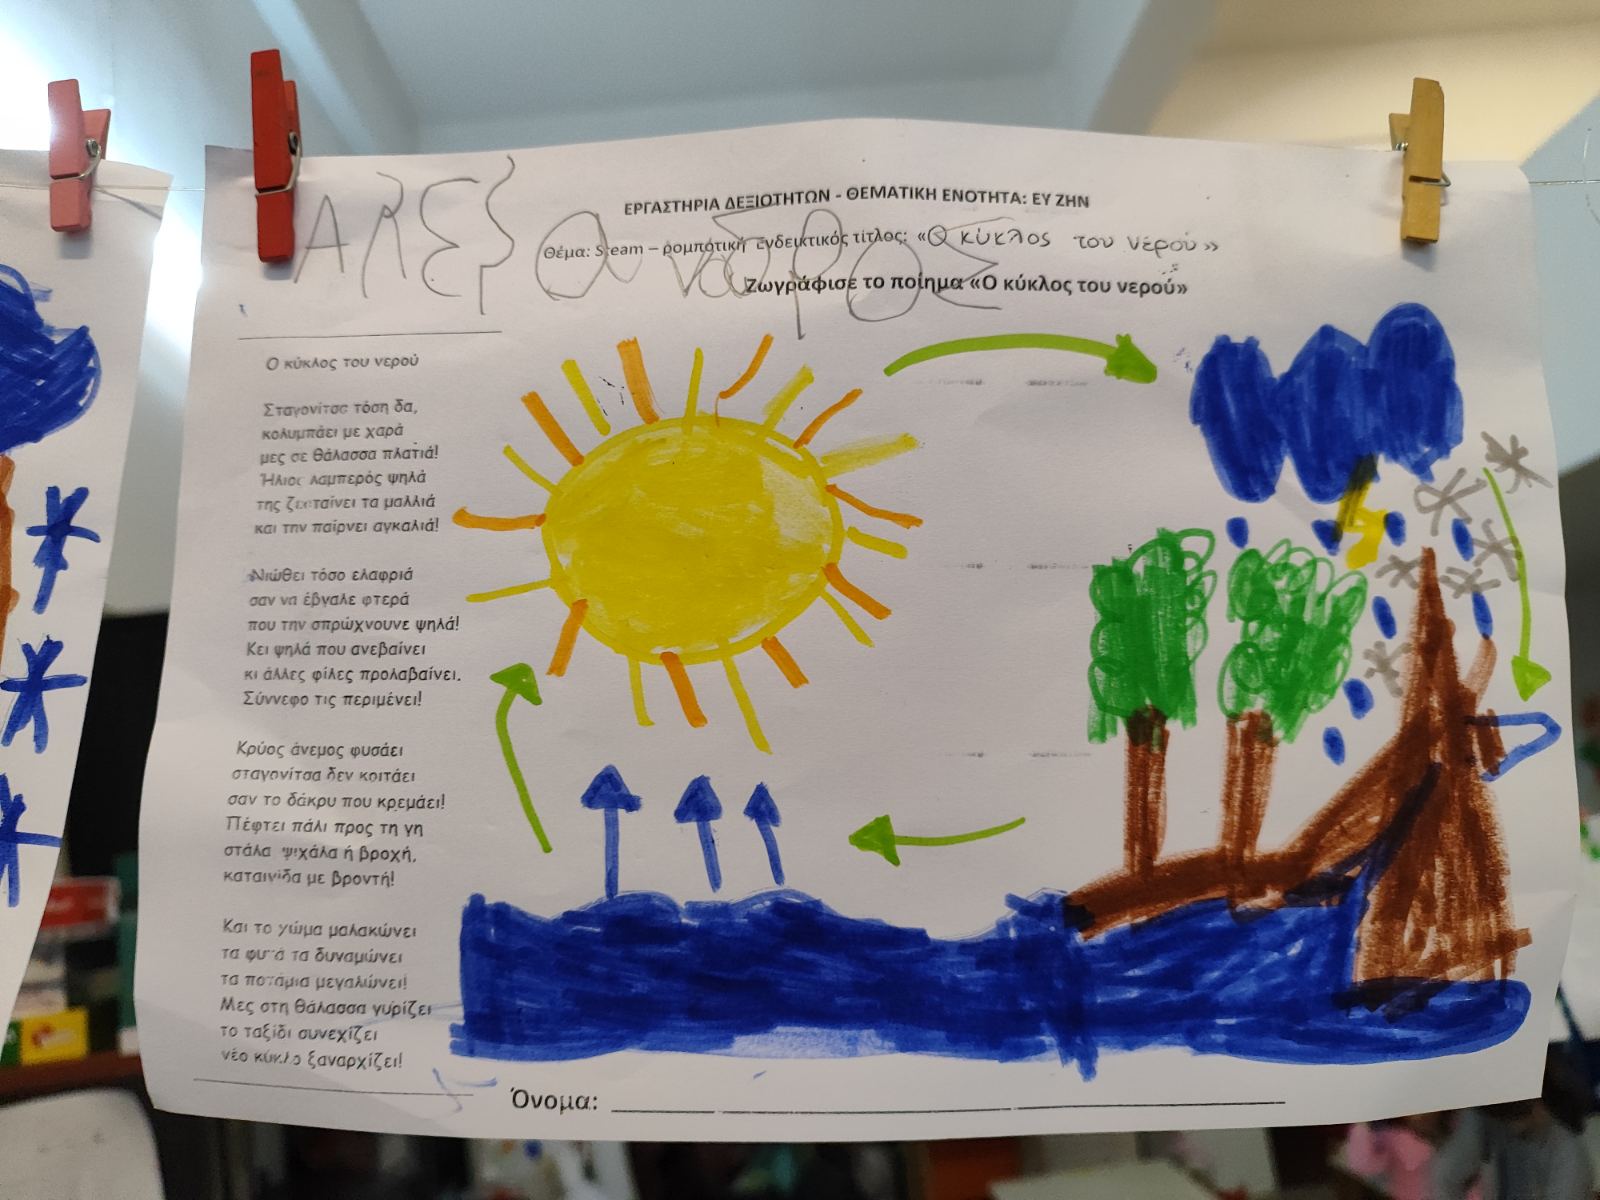 ΕΡΓΑΣΤΗΡΙΑ ΔΕΞΙΟΤΗΤΩΝ - ΘΕΜΑΤΙΚΗ ΕΝΟΤΗΤΑ: ΕΥ ΖΗΝ
Θέμα: Steam – ρομποτική ενδεικτικός τίτλος: «Ο κύκλος του νερού»
Ζωγράφισε το ποίημα «Ο κύκλος του νερού»
Ο κύκλος του νερού
Σταγονίτσα τόση δα,
κολυμπάει με χαρά
μες σε θάλασσα πλατιά!
Ήλιος λαμπερός ψηλά
της ζεσταίνει τα μαλλιά
και την παίρνει αγκαλιά!
Νιώθει τόσο ελαφριά
σαν να έβγαλε φτερά
που την σπρώχνουνε ψηλά!
Κει ψηλά που ανεβαίνει
κι άλλες φίλες προλαβαίνει.
Σύννεφο τις περιμένει!
Κρύος άνεμος φυσάει
σταγονίτσα δεν κοιτάει
σαν το δάκρυ που κρεμάει!
Πέφτει πάλι προς τη γη
στάλα ψιχάλα ή βροχή,
καταιγίδα με βροντή!
Και το χώμα μαλακώνει
τα φυτά τα δυναμώνει
τα ποτάμια μεγαλώνει!
Μες στη θάλασσα γυρίζει
το ταξίδι συνεχίζει
νέο κύκλο ξαναρχίζει!
Όνομα: